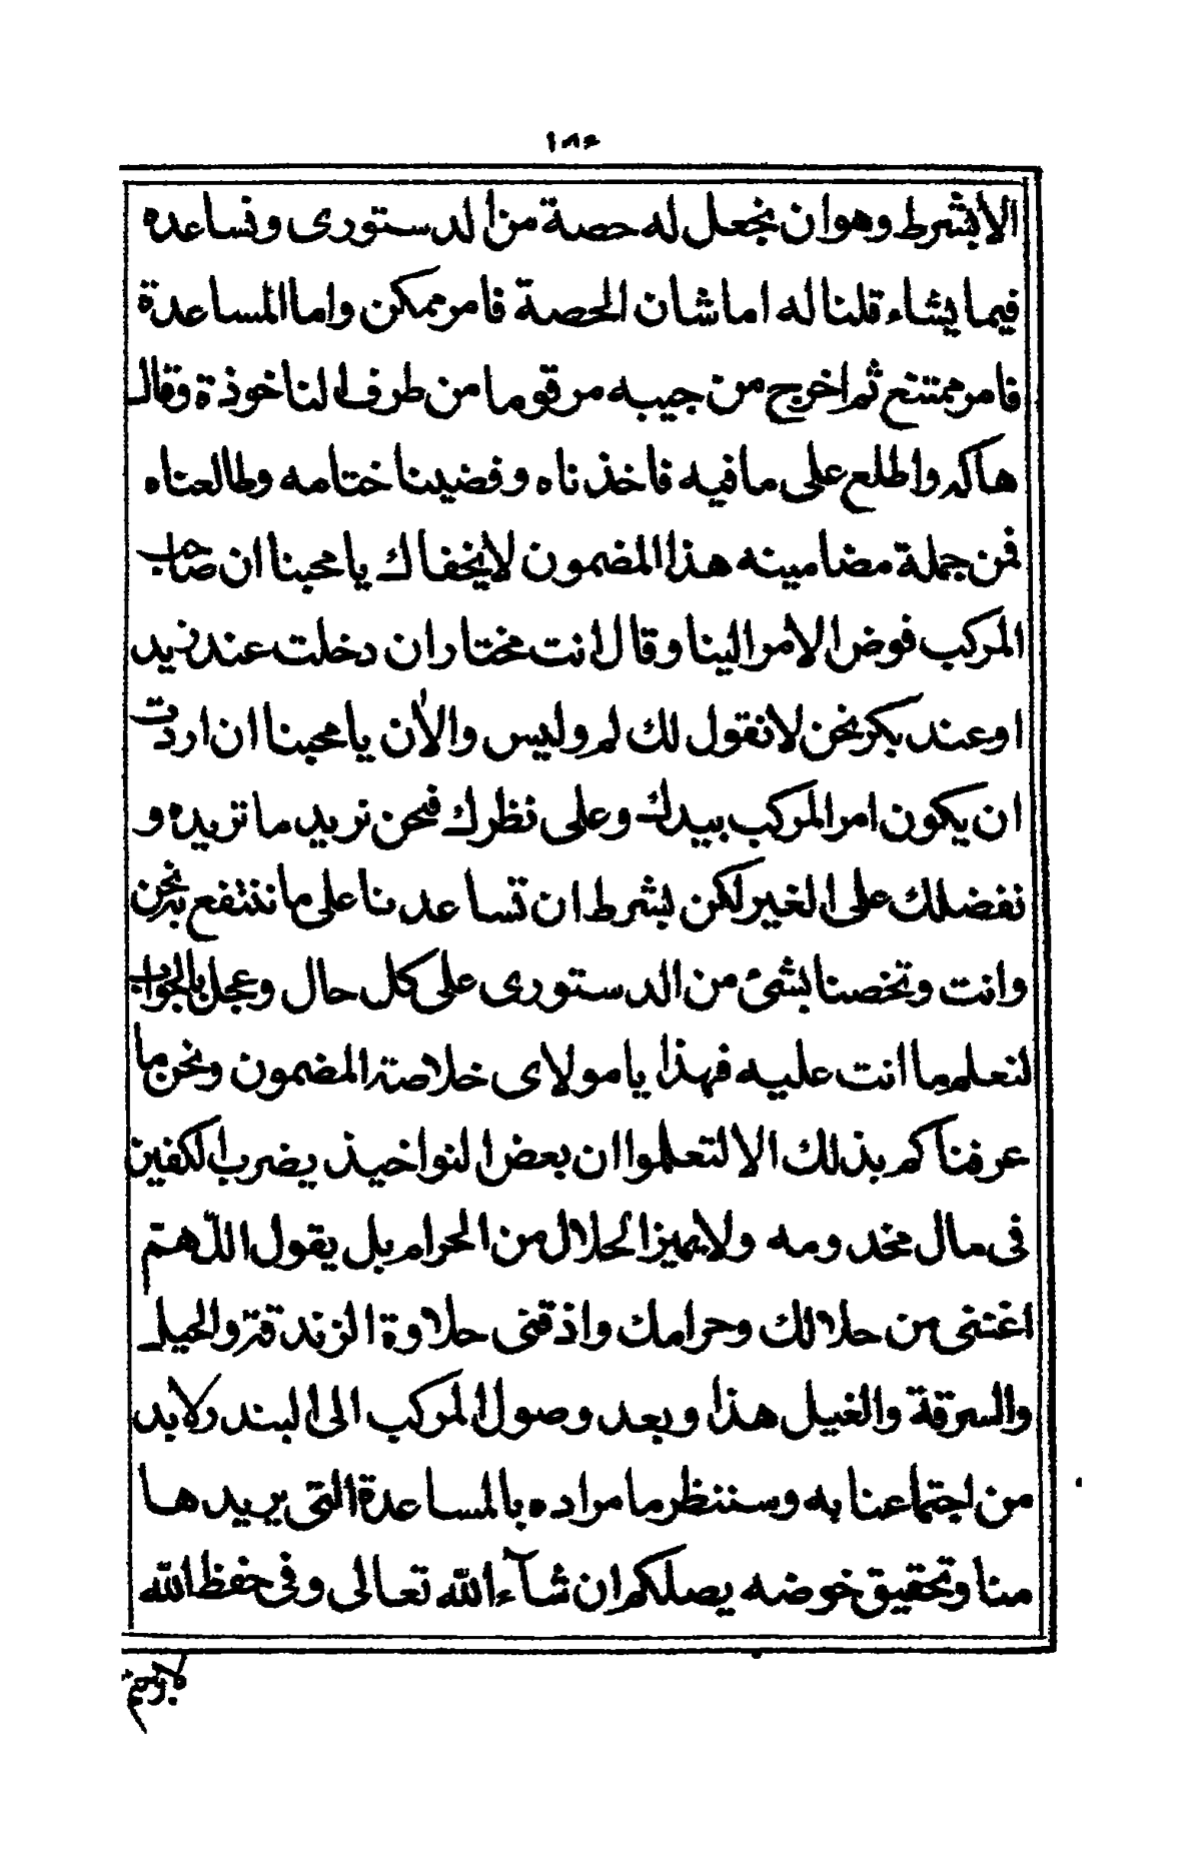 ١٨٤
الا بشرط وهو ان نجعل له حصة من الدستورى ونساعده
فيما يشاء قلنا له اما شان الحصة فامر ممكن واما المساعدة
فامر ممتنع ثم اخرج من جيبه مرقوما من طرف الناخوذة وقال
هاكه واطلع على ما فيه فاخذناه وفضينا ختامه وطالعناه
فمن جملة مضامينه هذا المضمون لا يخفاك يا محبنا ان صاحب
المركب فوض الامر الينا وقال انت مختار ان دخلت عند زيد
او عند بكر نحن لا نقول لك لم وليس والآن يا محبنا ان اردت
ان يكون امر المركب بيدك وعلى نظرك فنحن نريد ما تريده و
نفضلك على الغير لكن بشرط ان تساعدنا على ما ننتفع به نحن
وانت وتخصنا بشئ من الدستورى على كل حال وعجل بالجواب
لنعلم ما انت عليه فهذا يا مولاى خلاصة المضمون ونحن ما
عرفناكم بذلك الا لتعلموا ان بعض النواخيذ يضرب الكفين
فى مال مخدومه ولا يميز الحلال من الحرام بل يقول اللّهم
اغننى من حلالك وحرامك واذقنى حلاوة الزندقة والحيل
والسرقة والغيل هذا وبعد وصول المركب الى البندر لابد
من اجتماعنا به وسننظر ما مراده بالمساعدة التى يريدها
منا وتحقيق خوضه يصلكم ان شآء الله تعالى وفى حفظ الله
لا برحتم